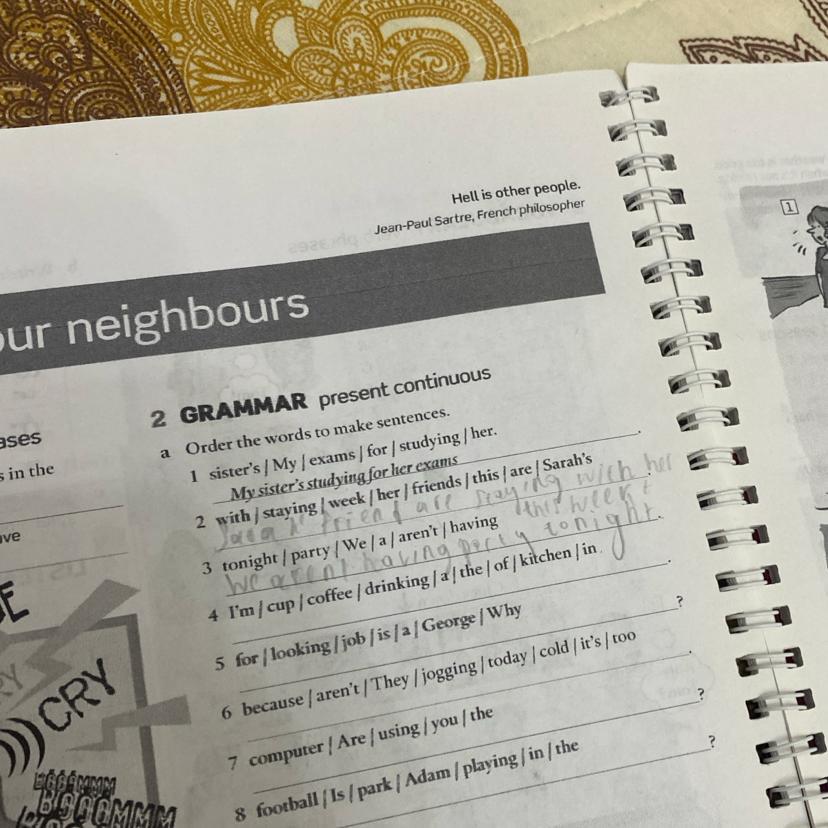 Hell is other people.
Jean-Paul Sartre, French philosopher
our neighbours
ases
s in the
ve
E
CRY
BOOOMMM
1
2 GRAMMAR present continuous
a Order the words to make sentences.
1 sister's | My | exams | for | studying | her.
My sister's studying for her exams.
2 with | staying | week | her | friends | this | are | Sarah's
friend are staying with her
this week
3 tonight | party | We | a | aren't | having
We aren't having party tonight.
4 I'm | cup | coffee | drinking | a | the | of | kitchen | in.
5 for | looking | job | is | a | George | Why
?
6 because | aren't | They | jogging | today | cold | it's | too
7 computer | Are | using | you | the
?
8 football | Is | park | Adam | playing | in | the
?